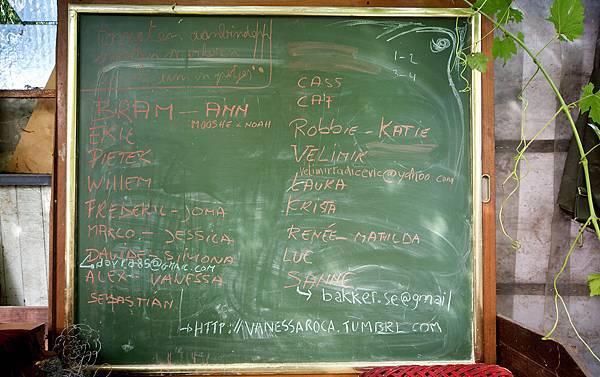 BRAM - ANN
MOOSHE - NOAH
ERIC
PIETER
WILLEM
FREDERIC - JOMA
MARCO - JESSICA
DAVIDE - SIMONA
ALEX - VANESSA
SEBASTIAN
1-2
3-4
CASS
CAT
Robbie - KATIE
VELIMIR
velimirradicevic@yahoo.com
LAURA
KRISTA
RENÉE - MATHILDA
LUC
SANNE
bakker.se@gmail
HTTP://VANESSAROCA.TUMBRL.COM